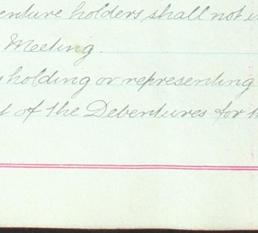 enture holders shall not
Meeting.
holding or representing
of the Debentures for